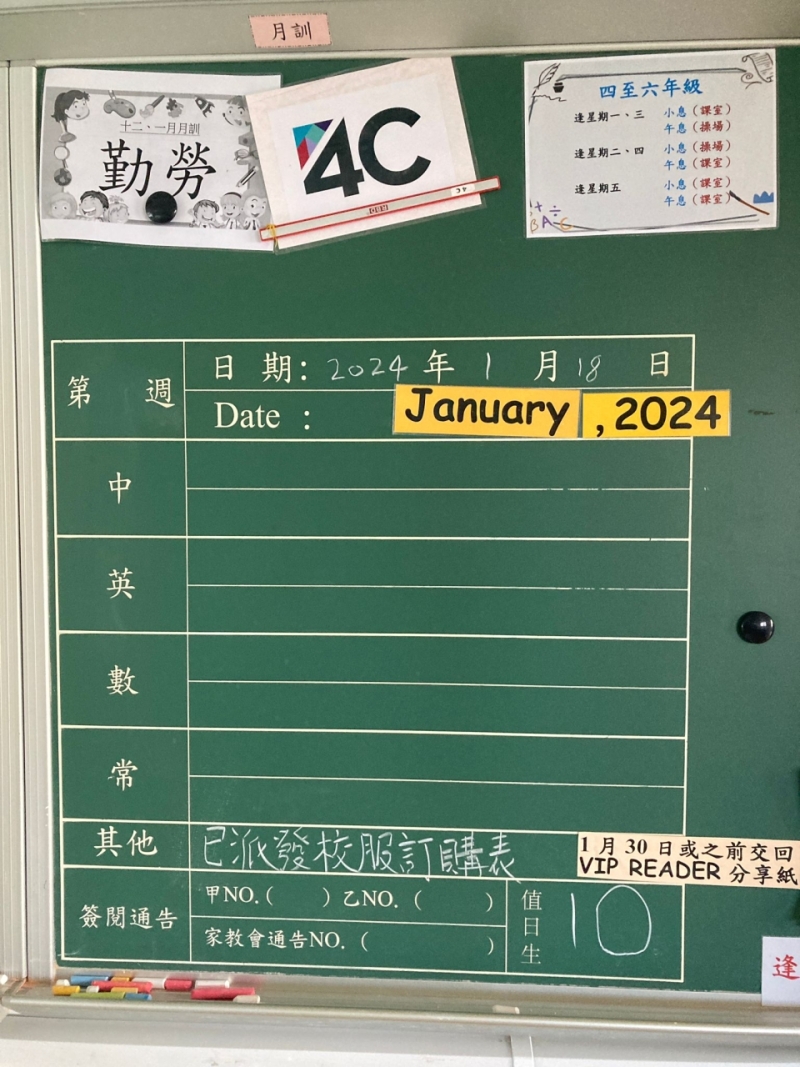 月訓
十二、一月月訓
勤勞
4C
四至六年級
逢星期一、三 小息（課室）
午息（操場）
逢星期二、四 小息（操場）
午息（課室）
逢星期五 小息（課室）
午息（課室）
第 週
日 期：2024 年 1 月 18 日
Date ： January , 2024
中
英
數
常
其他 已派發校服訂購表
1 月 30 日或之前交回
VIP READER 分享紙
簽閱通告
甲NO.（ ）乙NO.（ ）
家教會通告NO.（ ）
值日生 10
逢